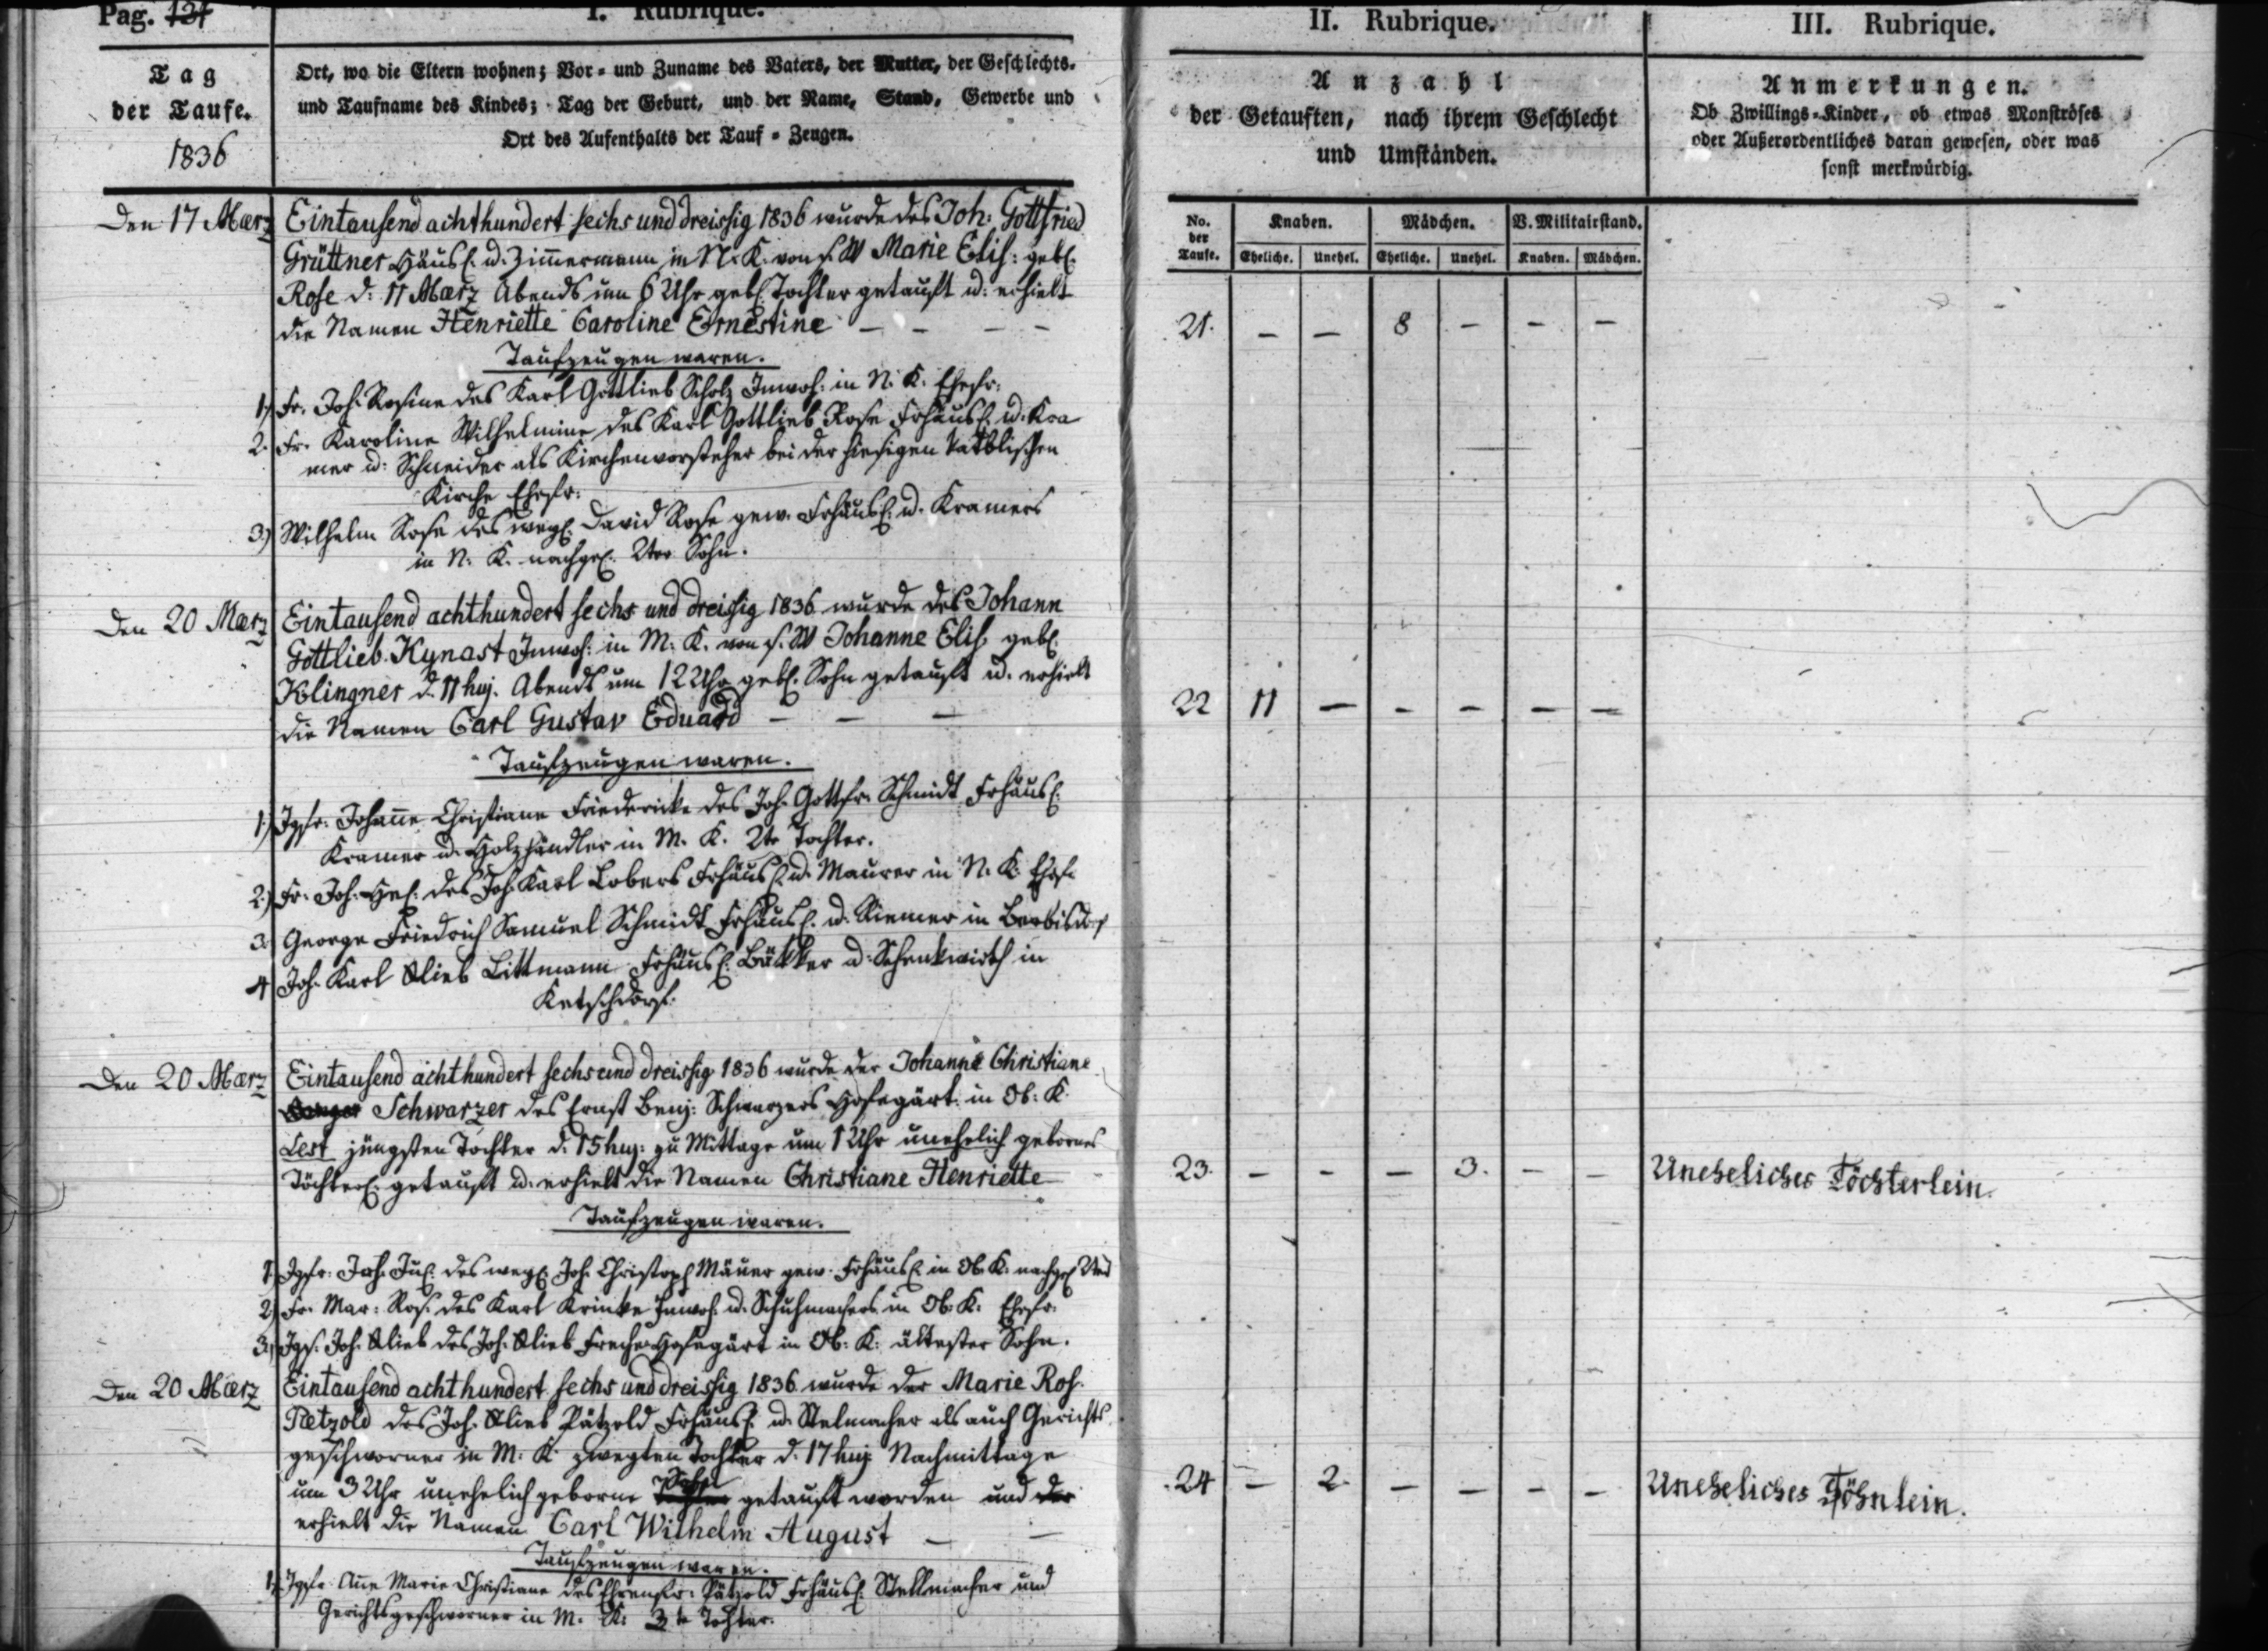 Pag. 121
I. Rubrique.
II. Rubrique.
III. Rubrique.
Tag
der Taufe.
1836
Ort, wo die Eltern wohnen; Vor- und Zuname des Vaters, der Mutter, der Geschlechts-
und Taufname des Kindes; Tag der Geburt, und der Name, Stand, Gewerbe und
Ort des Aufenthalts der Tauf-Zeugen.
Anzahl
der Getauften, nach ihrem Geschlecht
und Umständen.
Anmerkungen.
Ob Zwillings-Kinder, ob etwas Monströses
oder Außerordentliches daran gewesen, oder was
sonst merkwürdig.
No. der Taufe.
Knaben. Mädchen. V. Militairstand.
Eheliche. Unehel. Eheliche. Unehel. Knaben. Mädchen.
Den 17 Maerz Eintausend achthundert sechs und dreissig 1836 wurde des Joh: Gottfried
Grüttner Häusl. u. Zimmermann in N. K. von s. W Marie Elis: gebl.
Rose d: 11 Maerz Abends um 6 Uhr gebl. Tochter getauft u: erhielt
die Namen Henriette Caroline Ernestine – – – –
21. – – 8 – – –
Taufzeugen waren.
1.) Fr. Joh. Rosine des Karl Gottlieb Scholz Inwoh: in N. K. Ehefr:
2. Fr. Karoline Wilhelmine des Karl Gottlieb Rose Frhäusl. u. Kra
mer u: Schneider als Kirchenvorsteher bei der hiesigen katholischen
Kirche Ehefr:
3.) Wilhelm Rose des wegl. David Rose gew. Frhäusl. u. Kramers
in N. K. nachgel. 2ter Sohn.
Den 20 Maerz Eintausend achthundert sechs und dreissig 1836 wurde des Johann
Gottlieb Kynast Inwoh: in M. K. von s. W Johanne Elis. gebl.
Klingner d. 11 huj. Abends um 12 Uhr gebl. Sohn getauft u. erhielt
die Namen Carl Gustav Eduard – – –
22 11 – – – – –
Taufzeugen waren.
1.) Jgfr. Johanne Christiane Friedericke des Joh. Gottfr. Schmidt Frhäusl.
Kramer u. Holzhändler in M. K. 2te Tochter.
2.) Fr. Joh. Hel. des Joh. Karl Lobers Frhäusl. u. Maurer in N. K. Ehefr.
3. George Friedrich Samuel Schmidt Frhäusl. u. Riemer in Berbisdorf
4 Joh. Karl Glieb Littmann Frhäusl. Bäkker u. Schenkwirth in
Ketschdorf.
Den 20 Maerz Eintausend achthundert sechs und dreissig 1836 wurde der Johanne Christiane
Schwarzer des Ernst Benj: Schwarzers Hofegärt: in Ob: K.
Lest jüngsten Tochter d. 15 huj: zu Mittage um 1 Uhr unehelich gebornes
Töchterl. getauft u. erhielt die Namen Christiane Henriette
23. – – – 3. – – Uneheliches Töchterlein.
Taufzeugen waren.
1. Jgfr. Joh. Jul. des wegl. Joh. Christoph Mäuer gew. Frhäusl. in Ob. K. nachgel.
2.) Fr. Mar: Ros. des Karl Krinke Inwoh. u. Schuhmachers in Ob. K. Ehefr.
3.) Jgs. Joh. Glieb des Joh. Glieb Freche Hofegärt in Ob. K: ältester Sohn.
Den 20 Maerz Eintausend achthundert sechs und dreissig 1836 wurde der Marie Ros.
Petzold des Joh. Glieb Pätzold Frhäusl. u. Stelmacher als auch Gerichts
geschworner in M. K. zweyten Tochter d. 17 huj Nachmittage
um 3 Uhr unehelich geborne Tochter Sohn getauft worden und der
erhielt die Namen Carl Wilhelm August – –
24 – 2. – – – – Uneheliches Söhnlein.
Taufzeugen waren.
1. Jgfr. Anne Marie Christiane des Ehrenfr. Pätzold Frhäusl. Stellmacher und
Gerichtsgeschworner in M. K. 3te Tochter.